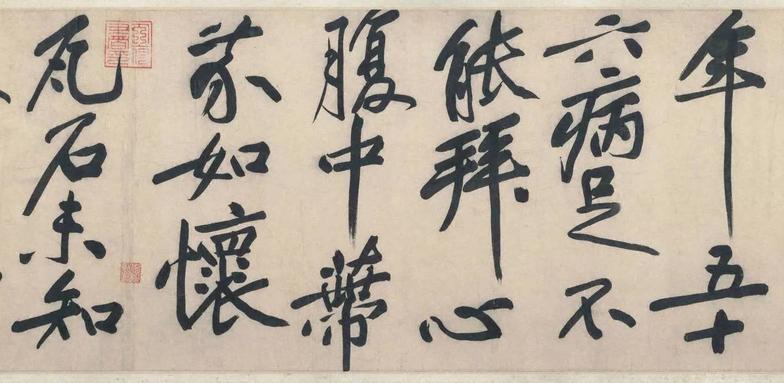 年五十
六病足不
能拜心
腹中蔕
芥如懷
瓦石未知